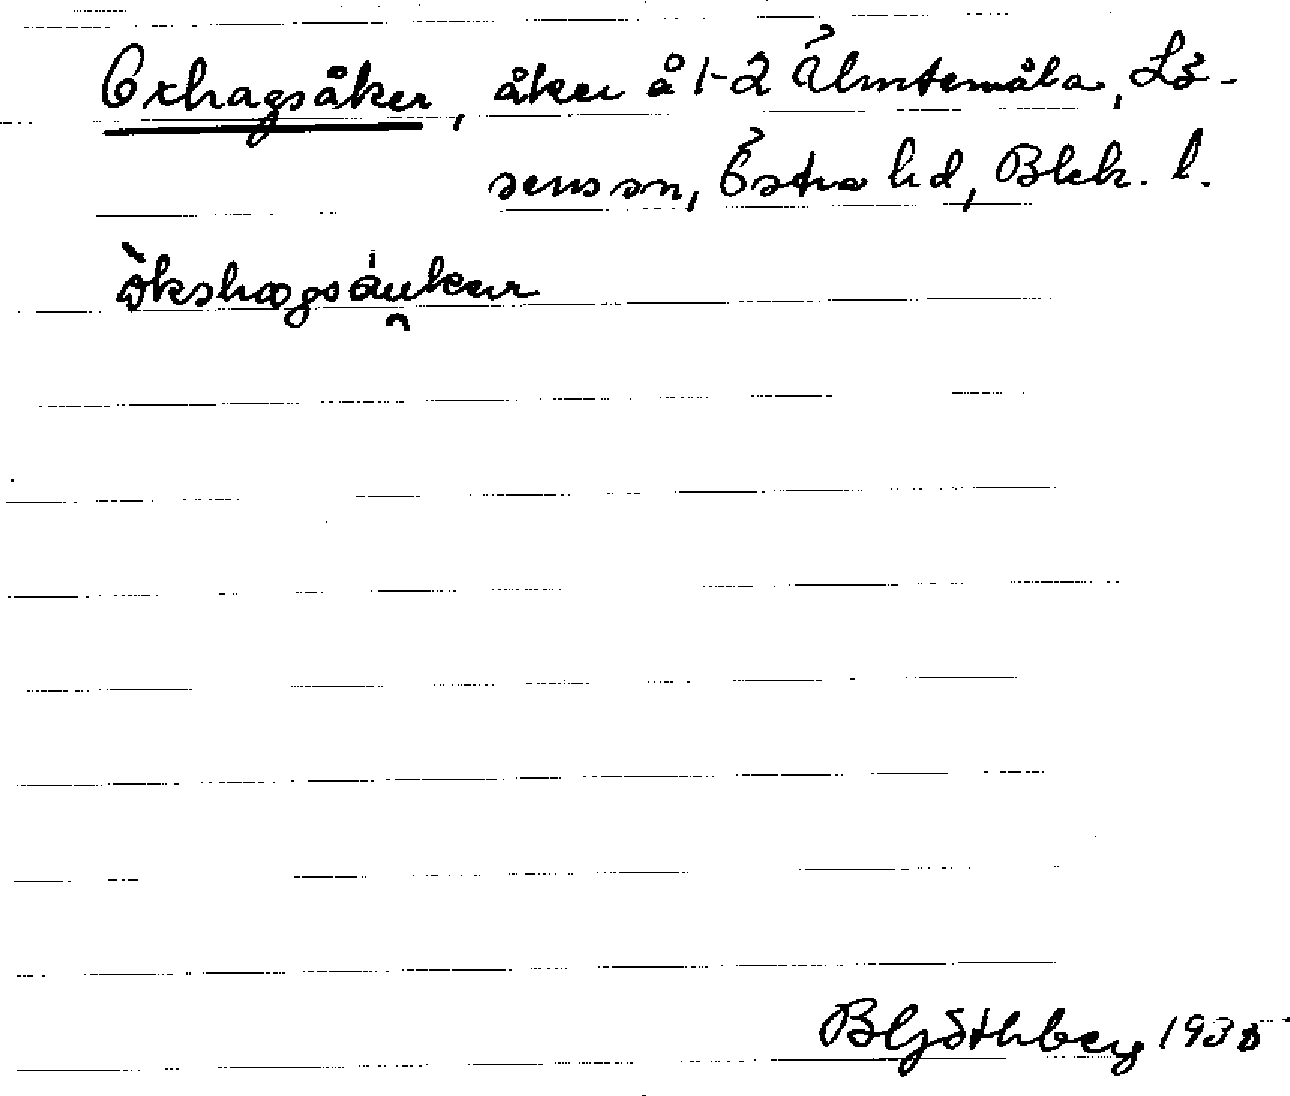 Oxhagsåker, åker å 1-2 Älmtemåla, Lö-
sens sn, Östra hd, Blek. l.
òkshagsåukar
B Ljöthberg 193